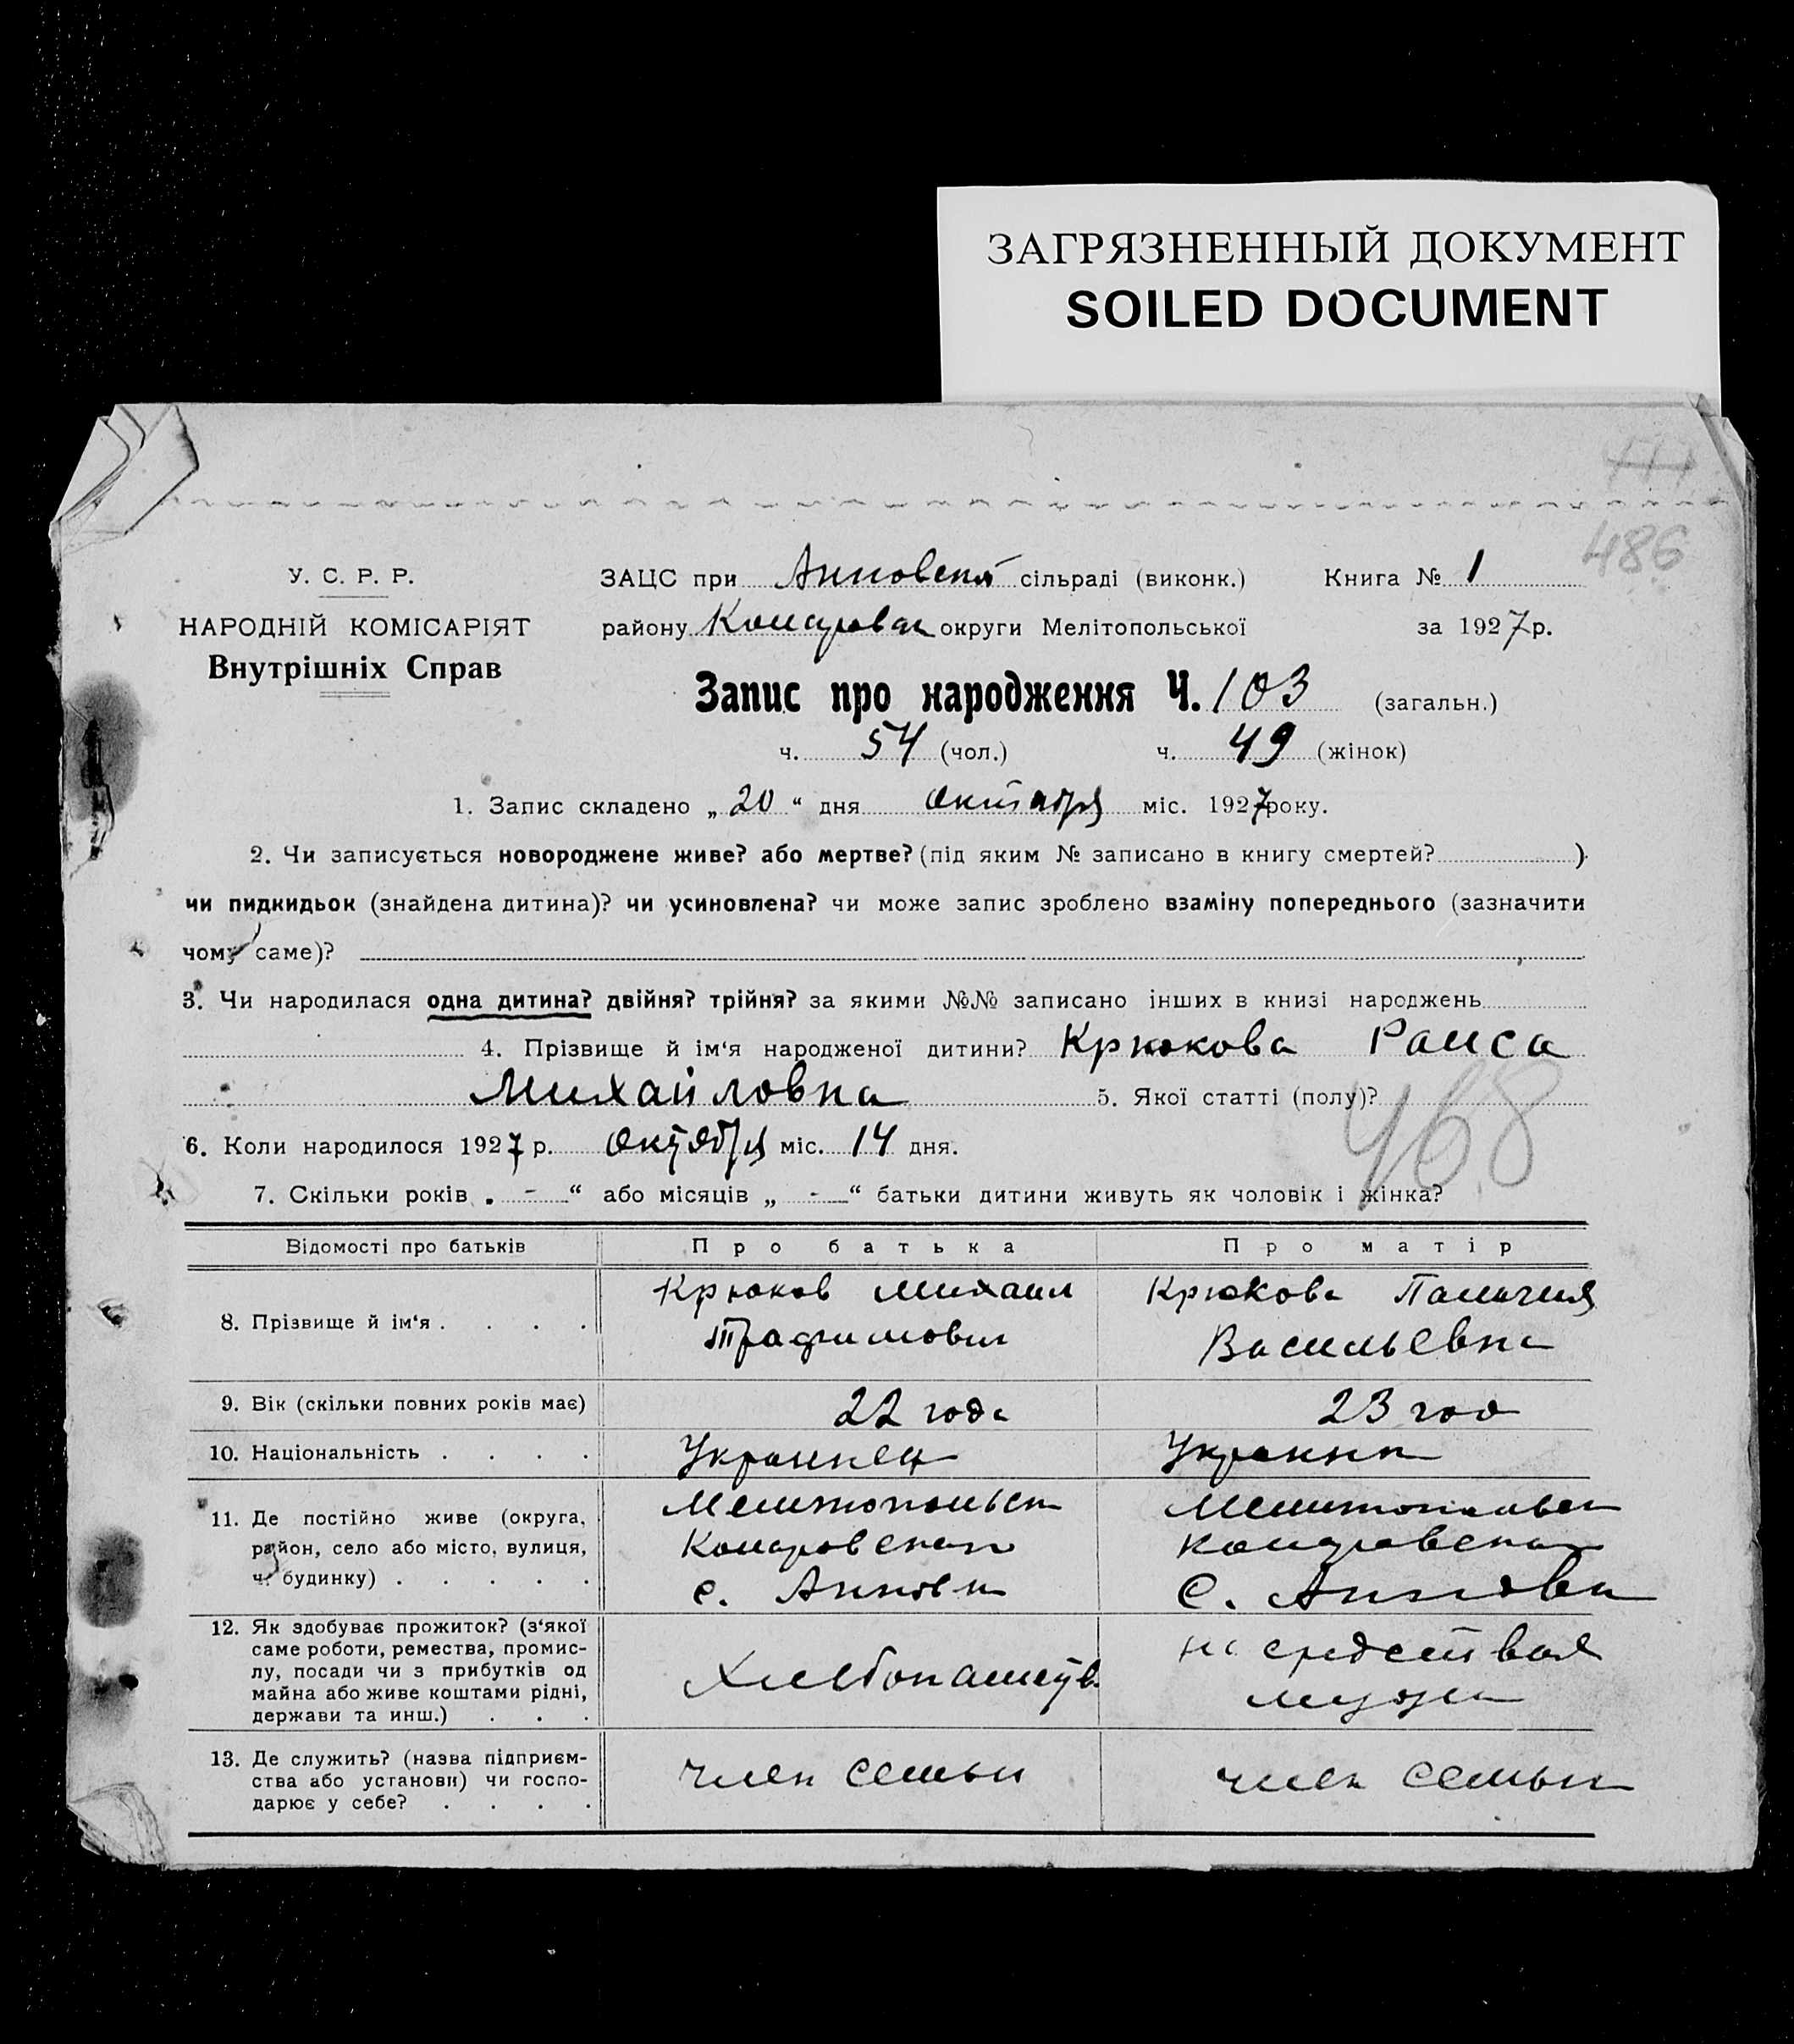 ЗАГРЯЗНЕННЫЙ ДОКУМЕНТ
SOILED DOCUMENT
486
У. С. Р. Р.
НАРОДНІЙ КОМІСАРІЯТ
Внутрішніх Справ
ЗАЦС при Анновской сільраді (виконк.) Книга № 1
району округи Мелітопольської за 1927 р.
Запис про народження Ч. 103 (загальн.)
ч. 54 (чол.) ч. 49 (жінок)
1. Запис складено „ 20 “ дня октября міс. 1927 року.
2. Чи записується новороджене живе? або мертве? (під яким № записано в книгу смертей? )
чи пидкидьок (знайдена дитина)? чи усиновлена? чи може запис зроблено взаміну попереднього (зазначити
чому саме)?
3. Чи народилася одна дитина? двійня? трійня? за якими №№ записано інших в книзі народжень
4. Прізвище й ім‘я народженої дитини? Крюкова Раиса
Михайловна 5. Якої статті (полу)?
468
6. Коли народилося 1927 р. Октября міс. 14 дня.
7. Скільки років „ - “ або місяців „ - “ батьки дитини живуть як чоловік і жінка?
Відомості про батьків Про батька Про матір
8. Прізвище й ім‘я . . . .
Крюков Михаил
Трафимович
Крюкова
Васильевна
9. Вік (скільки повних років має) 22 года 23 год
10. Національність . . . . Украинец Украинк
11. Де постійно живе (округа,
район, село або місто, вулиця,
ч. будинку) . . . . .
Мелитопольск
с. Анновк
Мелитопольск
С. Анновк
12. Як здобуває прожиток? (з‘якої
саме роботи, ремества, промис-
лу, посади чи з прибутків од
майна або живе коштами рідні,
держави та инш.) . . .
Хлебопашеств
на средствая
мужа
13. Де служить? (назва підприєм-
ства або установи) чи госпо-
дарює у себе? . . . .
член семьи
член семьи